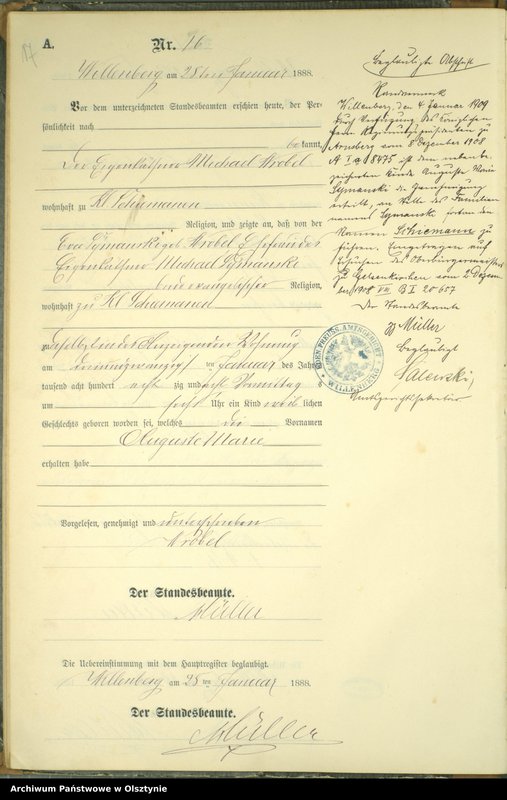 17
A.
Nr. 16
Willenberg am 25ten Januar 1888.
Vor dem unterzeichneten Standesbeamten erschien heute, der Per-
sönlichkeit nach
be kannt,
Der Eigenkäthner Michael Wrobel
wohnhaft zu Kl Schiemanen
Religion, und zeigte an, daß von der
Eva Symanski geb Wrobel Ehefrau des
Eigenkäthner Michael Symanski
beide evangelischer Religion,
wohnhaft zu Kl Schiemanen
zu
am ten Januar des Jahres
tausend acht hundert acht zig und acht Vormittag s
um sechs Uhr ein Kind weib lichen
Geschlechts geboren worden sei, welches die Vornamen
Auguste Marie
erhalten habe
Vorgelesen, genehmigt und unterschrieben
Wrobel
Der Standesbeamte.
Müller
Die Uebereinstimmung mit dem Hauptregister beglaubigt.
Willenberg am 25 ten Januar 1888.
Der Standesbeamte.
Müller
Beglaubigte Abschrift
Randvermerk
Willenberg, den 4 Januar 1909
Durch Verfügung des Königlichen
Herrn Regierungspräsidenten zu
Arnsberg vom 8 Dezember 1908
A I a 18475 ist dem nebenbe-
zeichneten Kinde Auguste Marie
Symanski die Genehmigung
erteilt, an Stelle des Familien
namens Symanski fortan den
Namen Schiemann zu
führen. Eingetragen auf
Ersuchen des Oberbürgermeisters
zu Gelsenkirchen vom Dezem
ber 1908 VII. B I 20607
Der Standesbeamte
gz Müller
Beglaubigt
Salewski,
Amtsgerichtssekretär
PREUSS. AMTSGERICHT
WILLENBERG
Archiwum Państwowe w Olsztynie